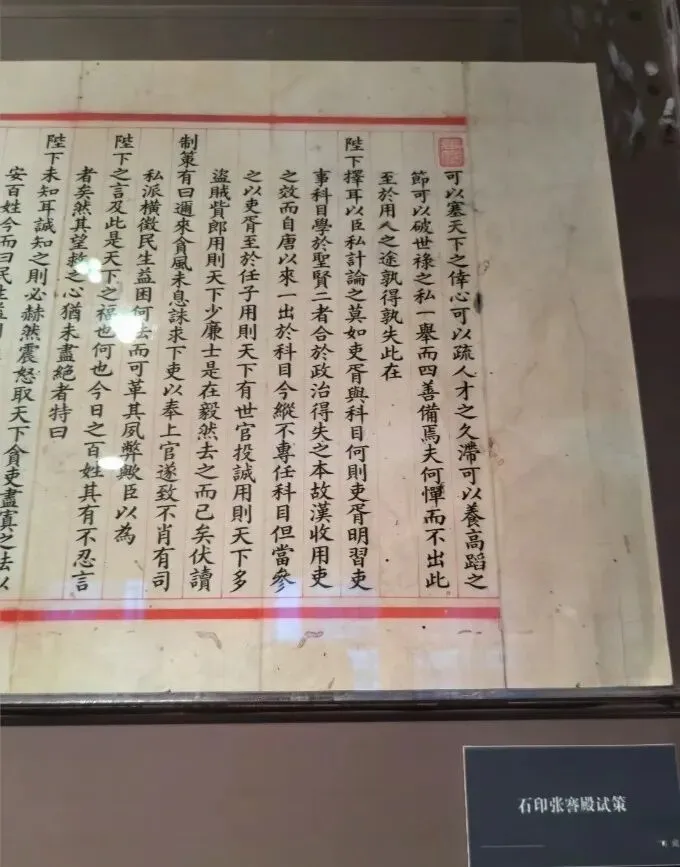 可以塞天下之倖心可以疏人才之久滯可以養高蹈之
節可以破世祿之私一舉而四善備焉夫何憚而不出此
至於用人之途孰得孰失此在
陛下擇耳以臣私計論之莫如吏胥與科目何則吏胥明習吏
事科目學於聖賢二者合於政治得失之本故漢收用吏
之效而自唐以來一出於科目今縱不專任科目但當參
之以吏胥至於任子用則天下有世官投誠用則天下多
盜賊貲郎用則天下少廉士是在毅然去之而已矣伏讀
制策有曰邇來貪風未息誅求下吏以奉上官遂致不肖有司
私派橫徵民生益困何去而可革其夙弊歟臣以為
陛下之言及此是天下之福也何也今日之百姓其有不忍言
者矣然其望救之心猶未盡絕者特曰
陛下未知耳誠知之則必赫然震怒取天下貪吏盡寘之法以
安百姓今而曰民生益困
石印张謇殿试策